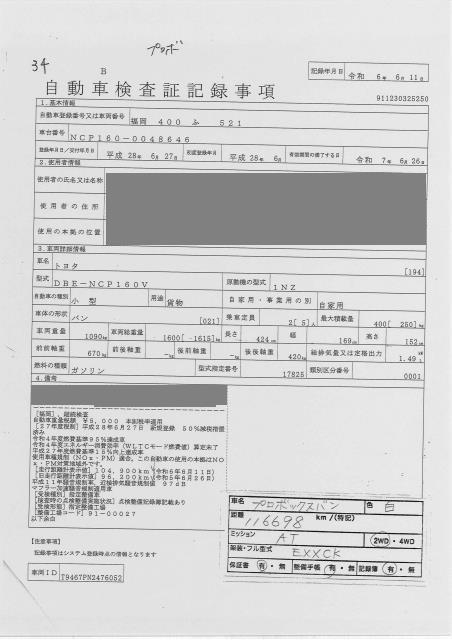 プロボ
34
B
記録年月日 令和 6年 6月 11日
自動車検査証記録事項
911230325250
1.基本情報
自動車登録番号又は車両番号 福岡 400 ふ 521
車台番号 NCP160-0048646
登録年月日/交付年月日 平成 28年 6月 27日 初度登録年月 平成 28年 6月 有効期間の満了する日 令和 7年 6月 26日
2.使用者情報
使用者の氏名又は名称
使用者の住所
使用の本拠の位置
3.車両詳細情報
車名 トヨタ [194]
型式 DBE-NCP160V 原動機の型式 1NZ
自動車の種別 小型 用途 貨物 自家用・事業用の別 自家用
車体の形状 バン [021] 乗車定員 2[ 5]人 最大積載量 400[ 250]kg
車両重量 1090kg 車両総重量 1600[ -1615]kg 長さ 424cm 幅 169cm 高さ 152cm
前前軸重 670kg 前後軸重 -kg 後前軸重 -kg 後後軸重 420kg 総排気量又は定格出力 1.49L
燃料の種類 ガソリン 型式指定番号 17825 類別区分番号 0001
4.備考
[福岡],継続検査
自動車重量税額 ¥5,000 本則税率適用
[27年度税制]平成28年6月27日 新規登録 50%減税措置
済み
令和4年度燃費基準95%達成車
令和4年度エネルギー消費効率(WLTCモード燃費値)算定未了
平成27年度燃費基準15%向上達成車
使用車種規制(NOx・PM)適合,この自動車の使用の本拠はNO
x・PM対策地域外です。
[走行距離計表示値]104,900km(令和6年6月11日)
[旧走行距離計表示値]96,200km(令和5年6月26日)
平成11年騒音規制車、近接排気騒音規制値 97dB
マフラー加速騒音規制適用車
[受検種別]指定整備車
[検査時の点検整備実施状況]点検整備記録簿記載あり
[受検形態]指定整備工場
[整備工場コード]91-00027
以下余白
車名 プロボックスバン 色 白
距離 116698 km/(特記)
ミッション AT 2WD・4WD
架装・フル型式 EXXCK
保証書 有・無 整備手帳 有・無 記録簿 有・無
【注意事項】
記録事項はシステム登録時点の情報となります
車両ID T9467PN2476052